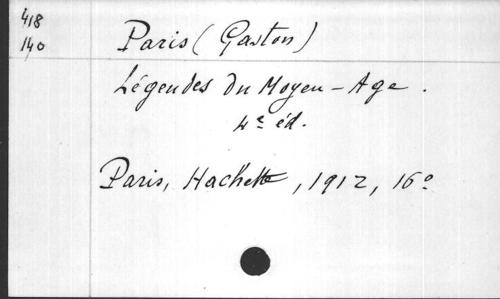 418
140
Paris (Gaston)
Légendes du Moyen-Age.
4e éd.
Paris, Hachette, 1912, 16°